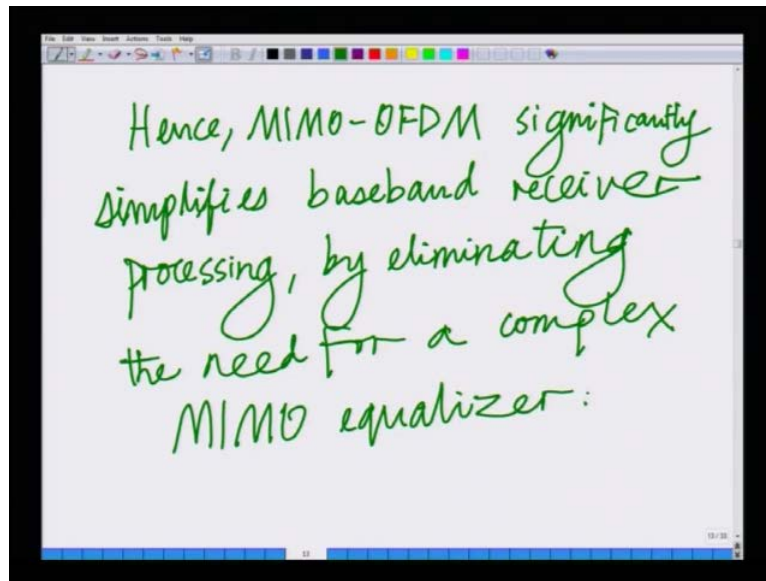 File Edit View Insert Actions Tools Help
Hence, MIMO-OFDM significantly
simplifies baseband receiver
processing, by eliminating
the need for a complex
MIMO equalizer.
13/33
13